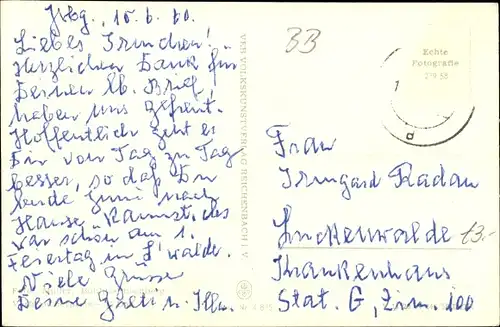 Jbg., 10.6.60.
Liebes Irmchen!
Herzlichen Dank für
Deinen lb. Brief,
haben uns gefreut.
Hoffentlich geht es
Dir von Tag zu Tag
besser, so daß Du
Ende Juni nach
Hause kannst, es
war schön am 1.
Feiertag in L'walde.
Viele Grüsse
Deine Greti u.
VEB VOLKSKUNSTVERLAG REICHENBACH I V
33
Echte
Fotografie
Frau
Irmgard Radau
Luckenwalde
13.-
Krankenhaus
Stat. G, Zim. 100